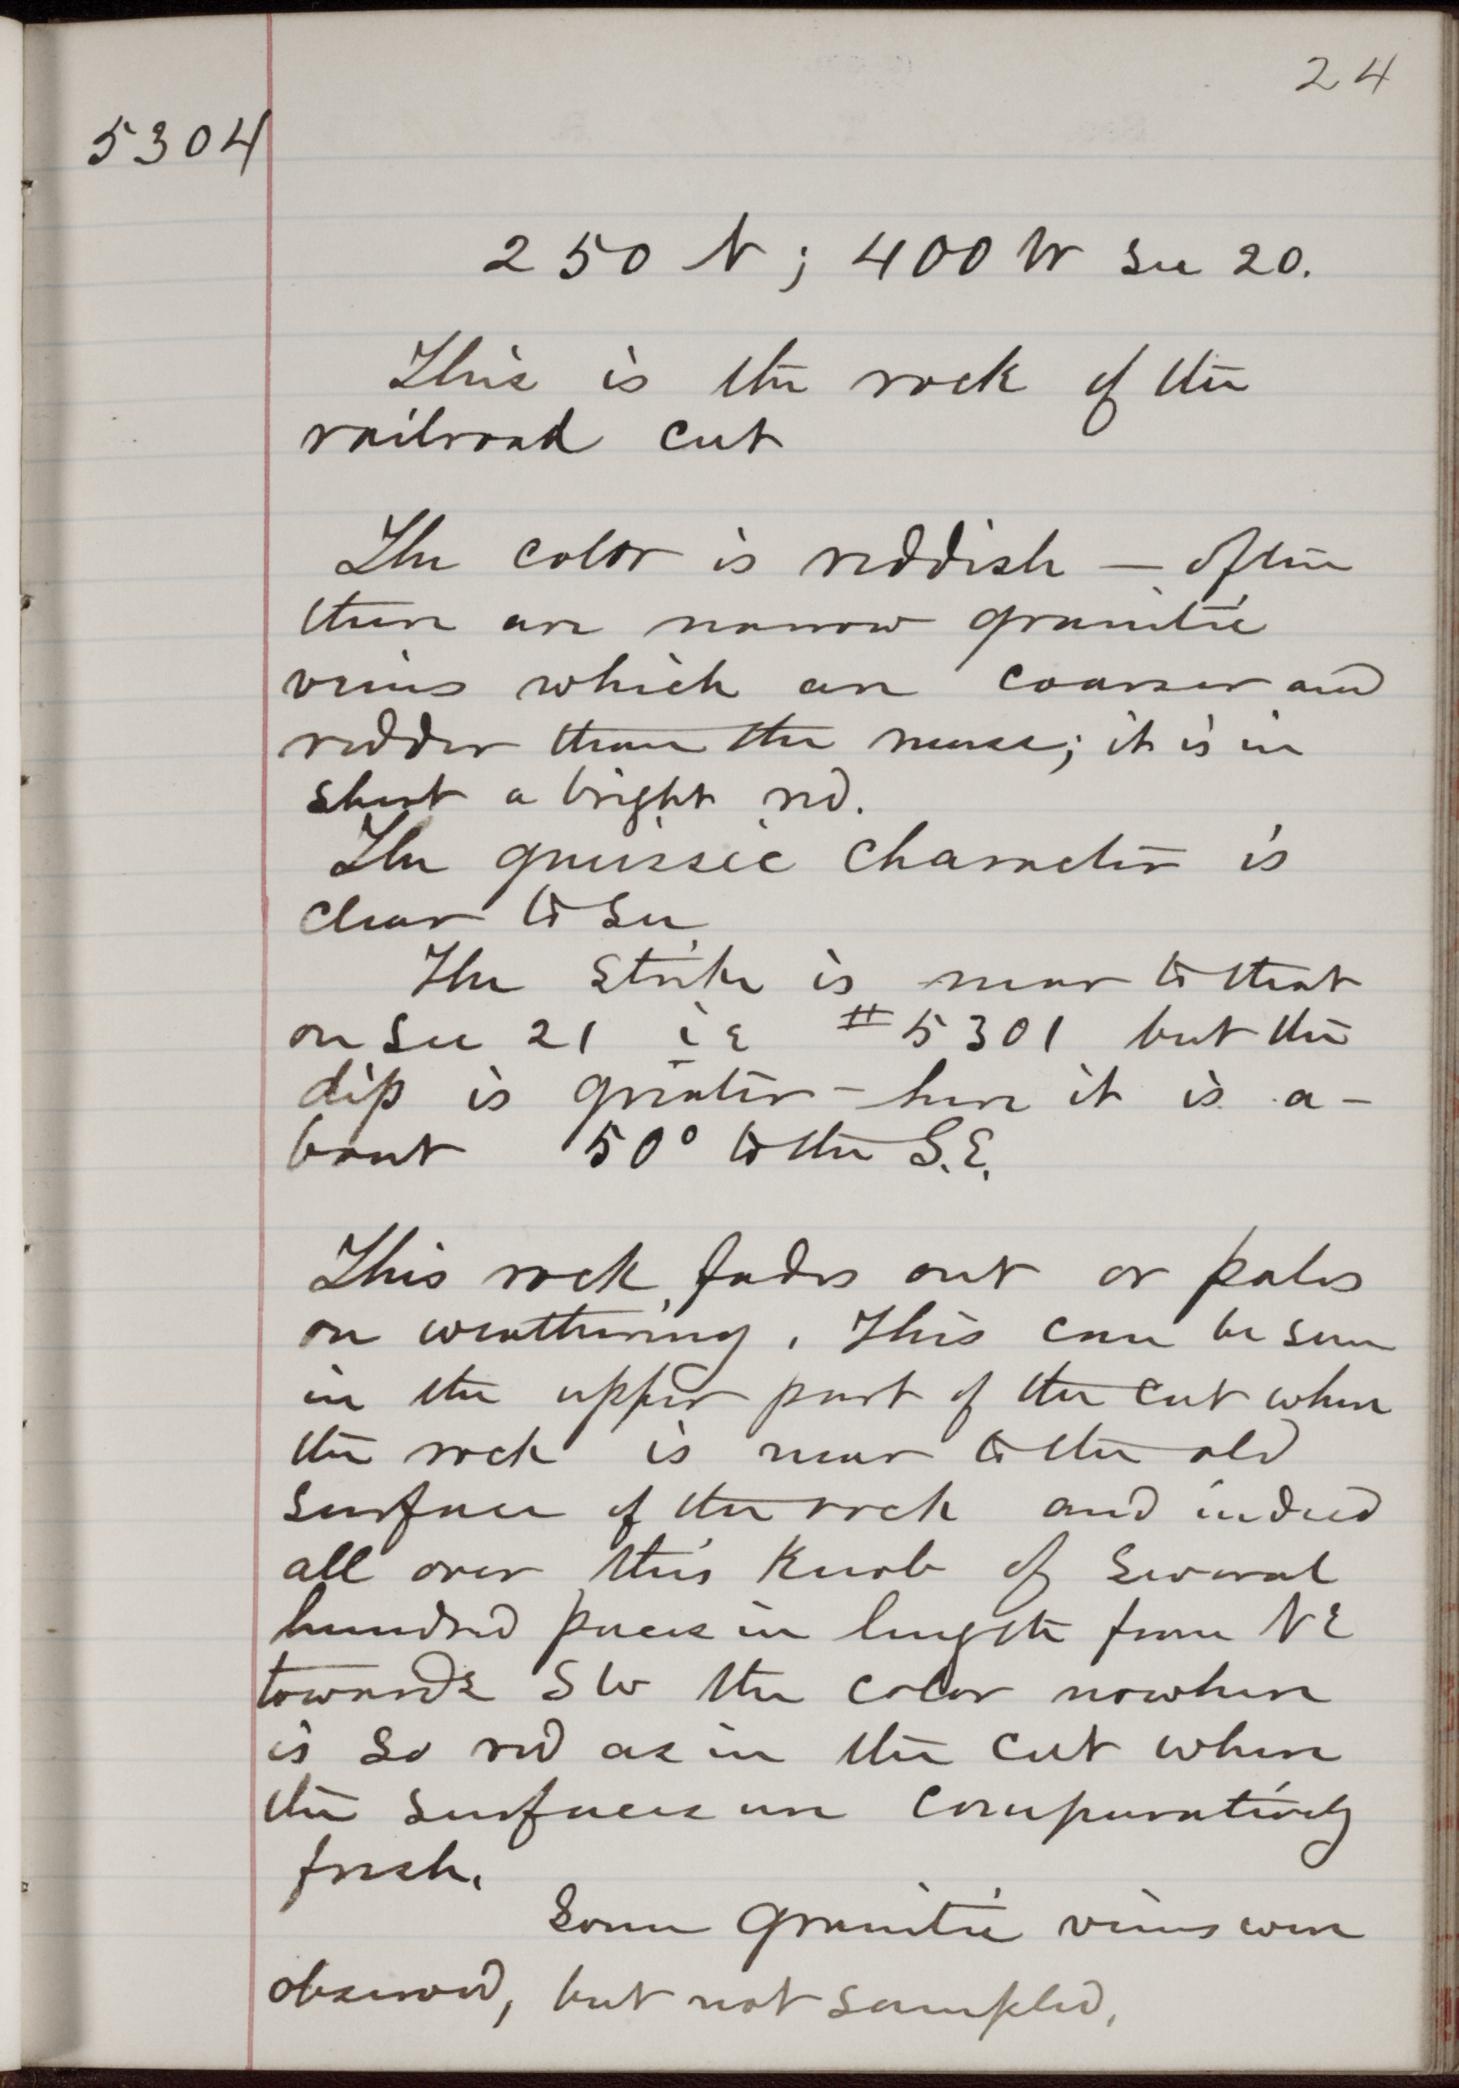 24
5304
250 N; 400 W Sec 20.
This is the rock of the
railroad cut
The color is reddish — often
there are narrow granitic
veins which are coarser and
redder than the mass; it is in
short a bright red.
The gneissic character is
clear to see
The strike is near to that
on Sec 21 i e #5301 but the
dip is greater – here it is a-
bout 50° to the S.E.
This rock fades out or pales
on weathering. This can be seen
in the upper part of the cut where
the rock is near to the old
surface of the rock and indeed
all over this knob of several
hundred paces in length from NE
towards SW the color nowhere
is so red as in the cut where
the surfaces are comparatively
fresh.
Some granitic veins were
observed, but not sampled.